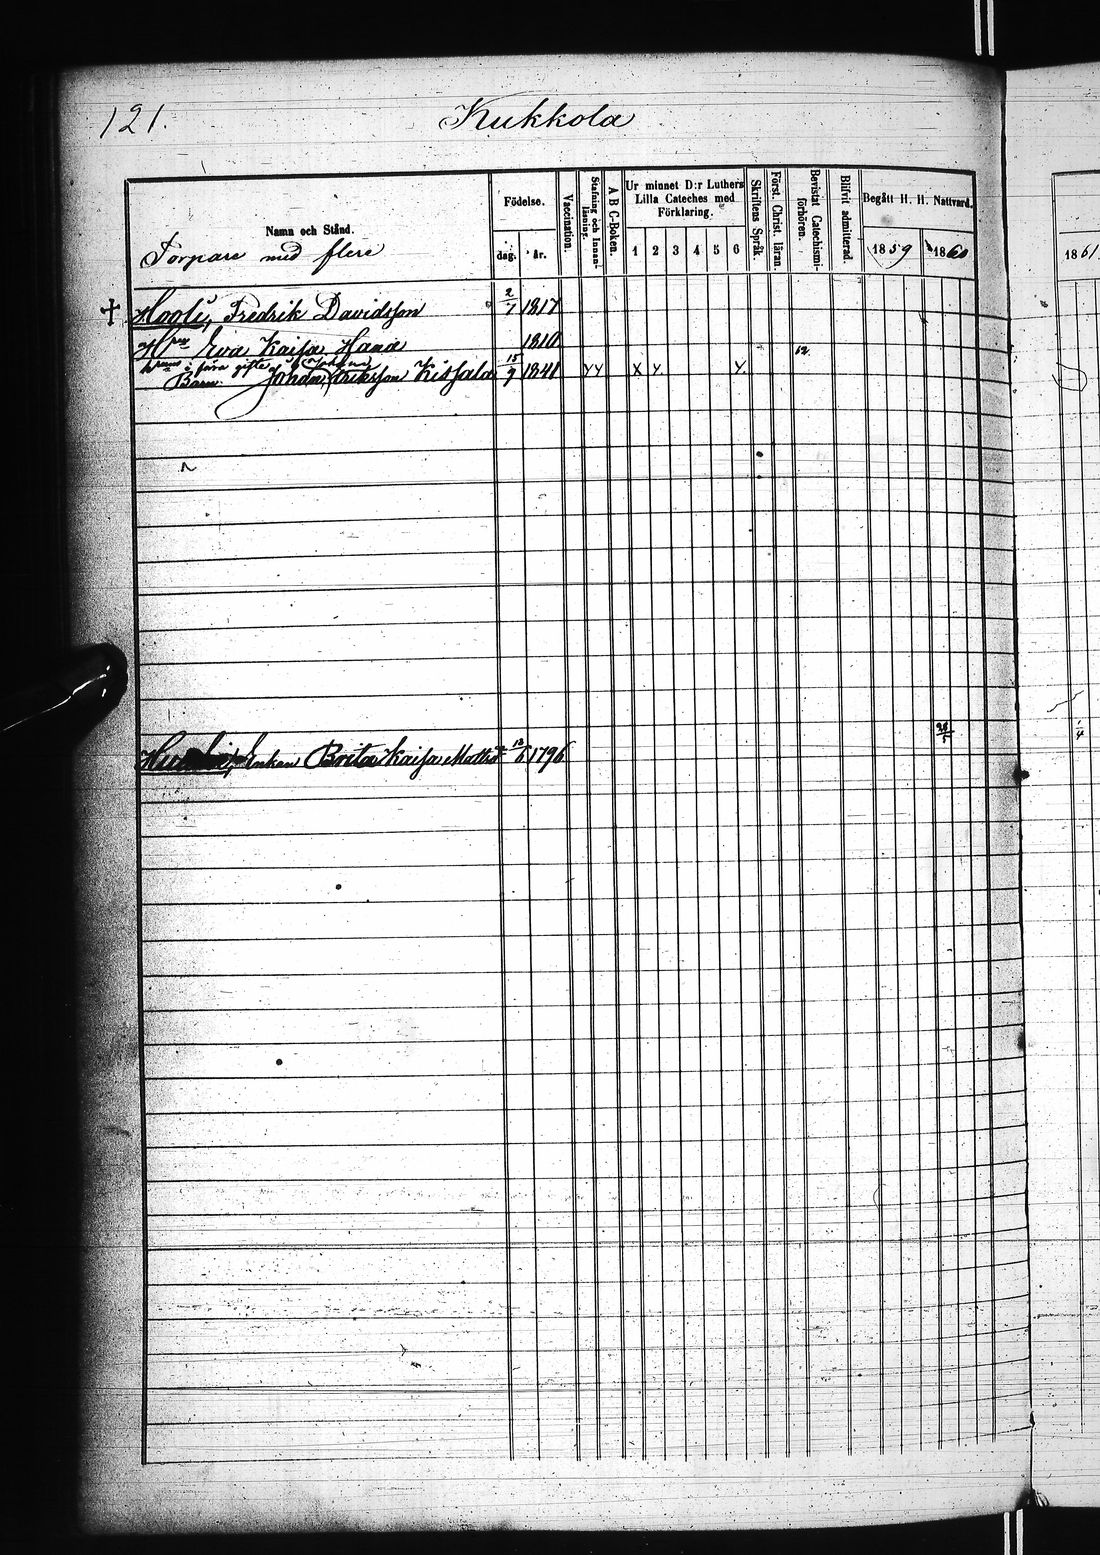 121.
Kukkola
Namn och Stånd.
Torpare med flere
Födelse.
dag. år.
Vaccination.
Stafning och Innanläsning.
A B C-Boken.
Ur minnet D:r Luthers
Lilla Cateches med
Förklaring.
1 2 3 4 5 6
Skriftens Språk
Först. Christ. läran.
Bevistat Catechismiförhören.
Blifvit admitterad.
Begått H. H. Nattvard.
1859 1860
1861
Fredrik Davidsson 2/7 1817
Eva Kaisa 1810
i förra gifte
Barn Johan Eriksson 15/9 1841 Y Y X Y Y 12
Enkan Brita Kaisa 12/6 1796